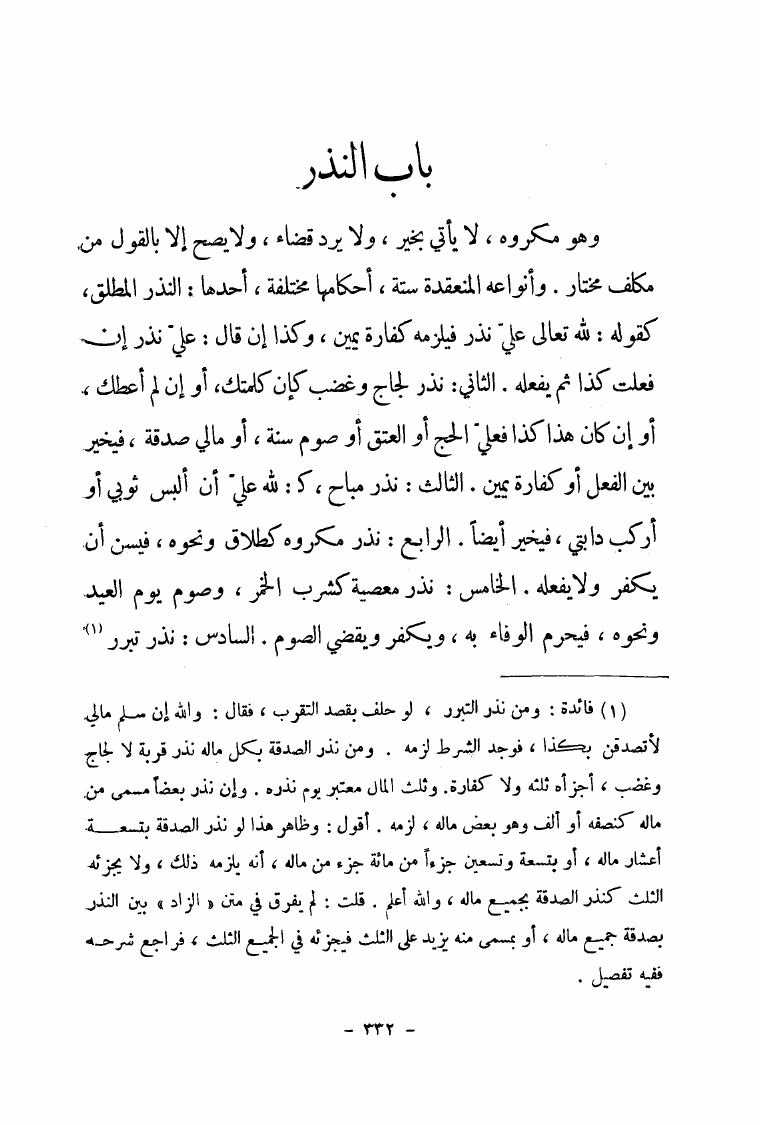 باب النذر
وهو مكروه ، لا يأتي بخير ، ولا يرد قضاء ، ولا يصح إلا بالقول من
مكلف مختار . وأنواعه المنعقدة ستة ، أحكامها مختلفة ، أحدها : النذر المطلق،
كقوله : لله تعالى عليّ نذر فيلزمه كفارة يمين ، وكذا إن قال : عليّ نذر إن
فعلت كذا ثم يفعله . الثاني: نذر لجاج وغضب كإن كلمتك، أو إن لم أعطك ،
أو إن كان هذا كذا فعليّ الحج أو العتق أو صوم سنة ، أو مالي صدقة ، فيخير
بين الفعل أو كفارة يمين . الثالث : نذر مباح ، كـ : لله عليّ أن ألبس ثوبي أو
أركب دابتي ، فيخير أيضاً . الرابع : نذر مكروه كطلاق ونحوه ، فيسن أن
يكفر ولا يفعله . الخامس : نذر معصية كشرب الخمر ، وصوم يوم العيد
ونحوه ، فيحرم الوفاء به ، ويكفر ويقضي الصوم . السادس : نذر تبرر (١)
(١) فائدة : ومن نذر التبرر ، لو حلف بقصد التقرب ، فقال : والله إن سلم مالي
لأتصدقن بكذا ، فوجد الشرط لزمه . ومن نذر الصدقة بكل ماله نذر قربة لا لجاج
وغضب ، أجزأه ثلثه ولا كفارة. وثلث المال معتبر يوم نذره . وإن نذر بعضاً مسمى من
ماله كنصفه أو ألف وهو بعض ماله ، لزمه . أقول : وظاهر هذا لو نذر الصدقة بتسعة
أعشار ماله ، أو بتسعة وتسعين جزءاً من مائة جزء من ماله ، أنه يلزمه ذلك ، ولا يجزئه
الثلث كنذر الصدقة بجميع ماله ، والله أعلم . قلت : لم يفرق في متن « الزاد » بين النذر
بصدقة جميع ماله ، أو بمسمى منه يزيد على الثلث فيجزئه في الجميع الثلث ، فراجع شرحه
ففيه تفصيل .
- ٣٣٢ -